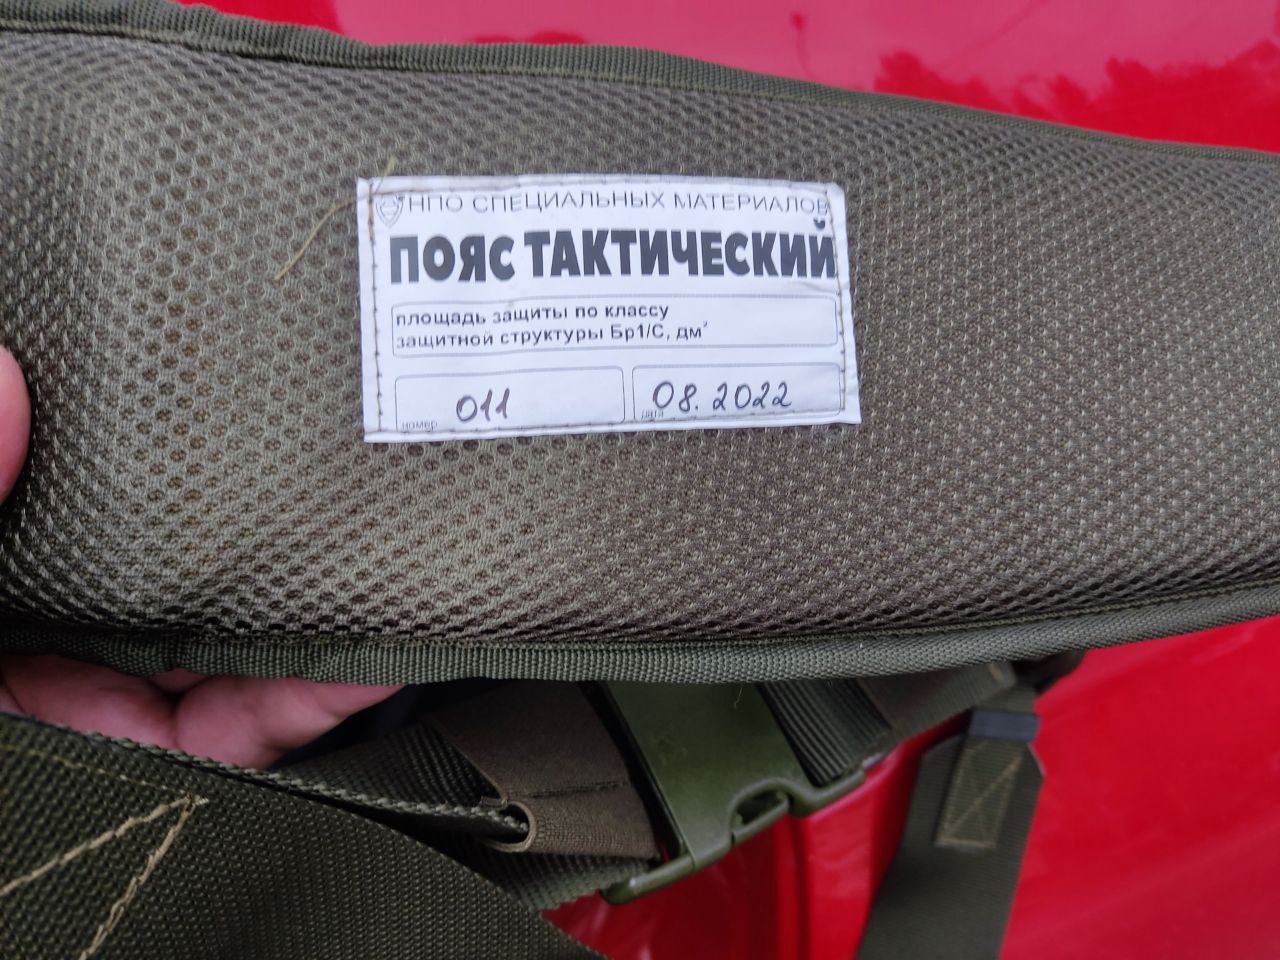 НПО СПЕЦИАЛЬНЫХ МАТЕРИАЛОВ
ПОЯС ТАКТИЧЕСКИЙ
площадь защиты по классу
защитной структуры Бр1/С, дм²
номер 011
дата 08.2022